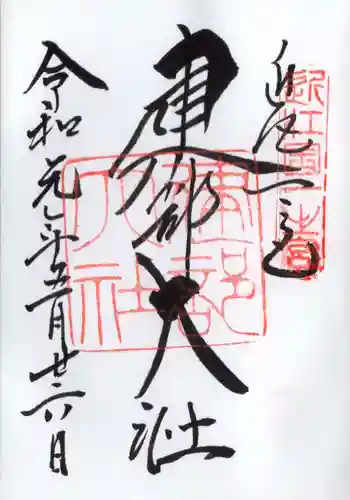 近江一之宮
建部大社
令和元年五月廿六日
近江國一之宮
建部大社